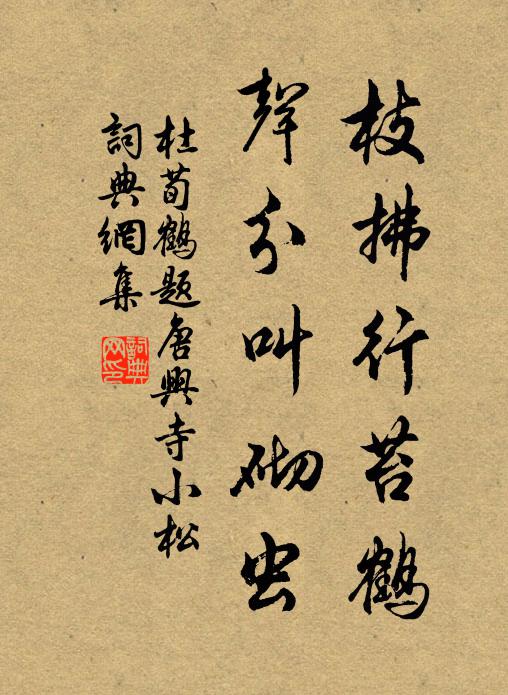 枝拂行苔鶴
聲分叫砌虫
杜荀鶴题唐興寺小松
詞典網集
詞典網印